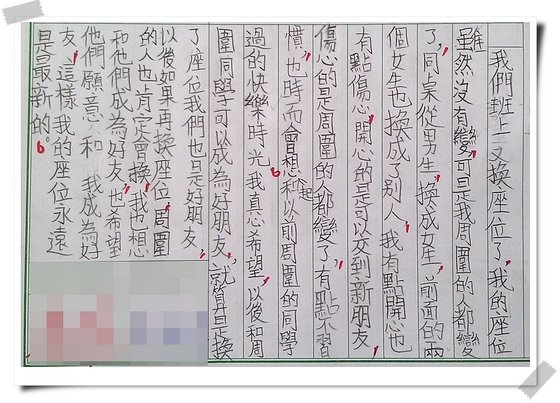 我們班上又換座位了,我的座位
雖然沒有變,可是我周圍的人都變
了,同桌從男生,換成女生,前面的兩
個女生也換成了別人,我有點開心也
有點傷心,開心的是可以交到新朋友,
傷心的是周圍的人都變了,有點不習
慣,也時而會想起和以前周圍的同學
過的快樂時光。我真心希望,以後和周
圍同學可以成為好朋友,就算是換
了座位我們也是好朋友,
以後如果再換座位,周圍
的人也肯定會換,我也想
和他們成為好友,也希望
他們願意和我成為好
友,這樣我的座位永遠
是最新的。